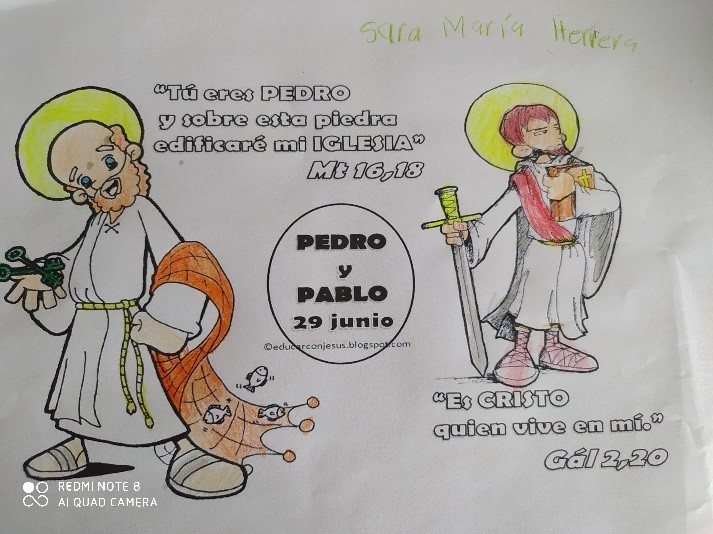 Sara María Herrera
"Tú eres PEDRO
y sobre esta piedra
edificaré mi IGLESIA"
Mt 16,18
PEDRO
y
PABLO
29 junio
©educarconjesus.blogspot.com
"Es CRISTO
quien vive en mí."
Gál 2,20
REDMI NOTE 8
AI QUAD CAMERA